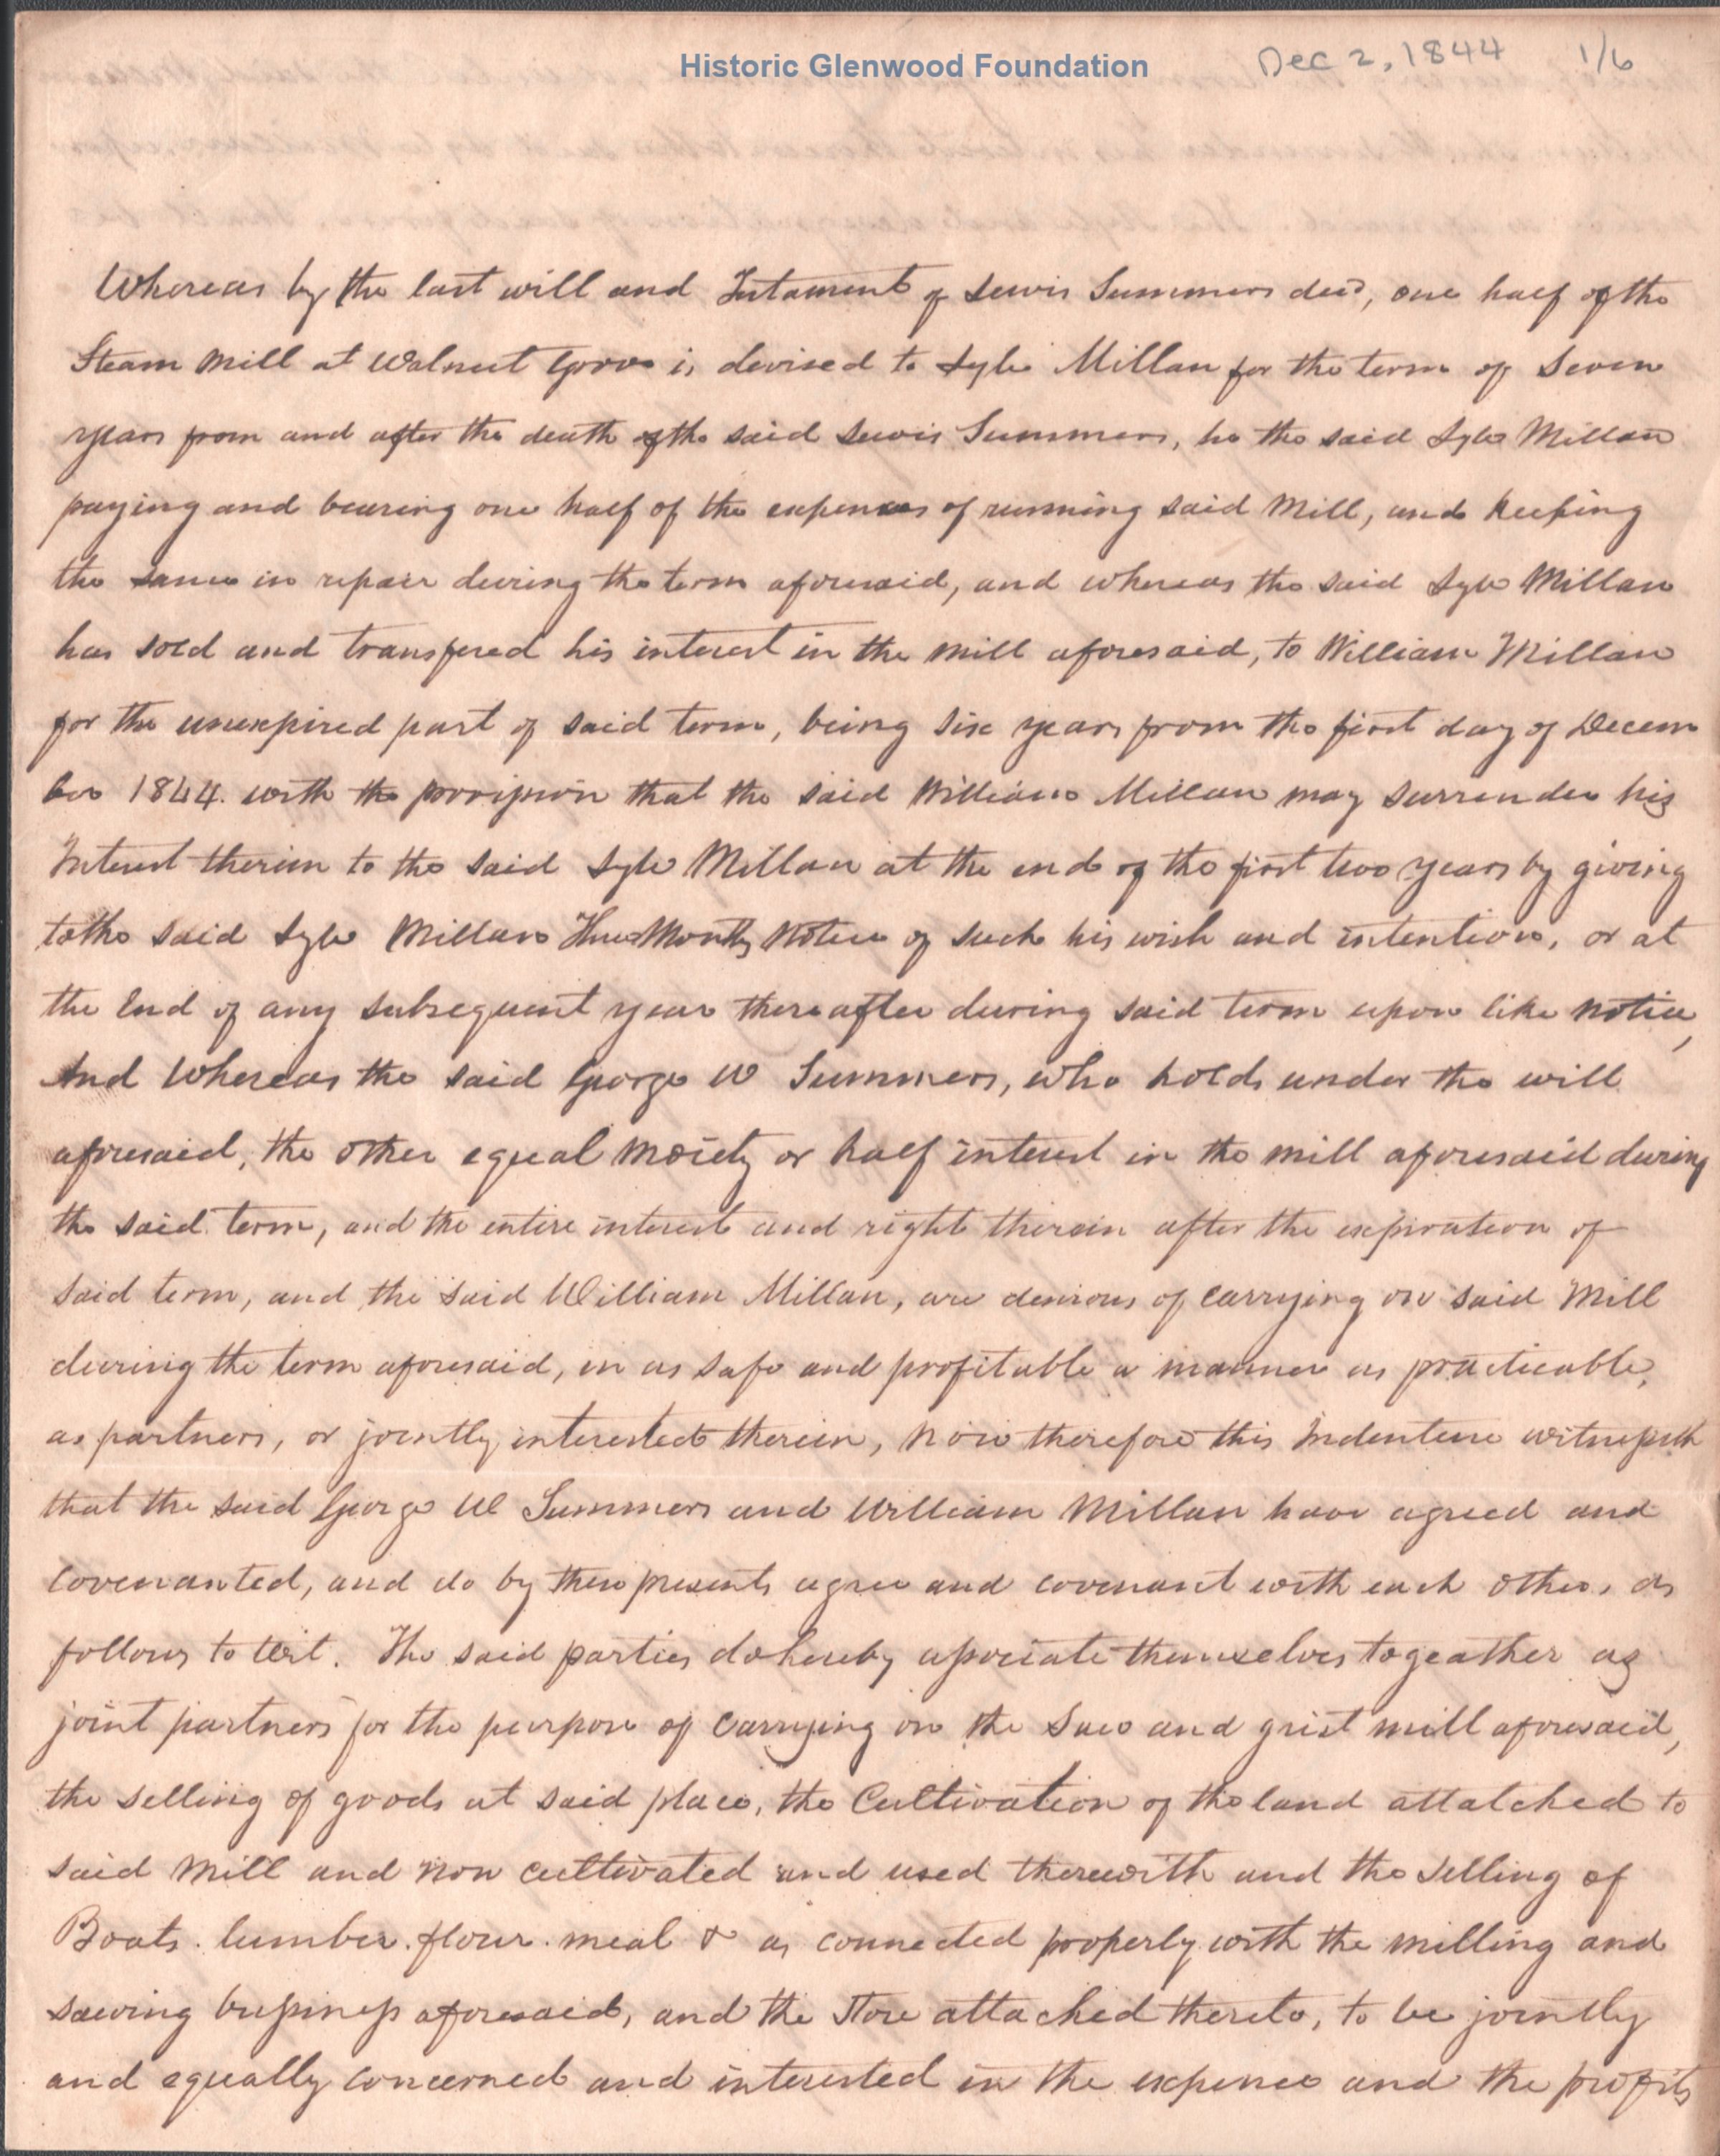 Historic Glenwood Foundation
Dec 2, 1844 1/6
Whereas by the last will and Testament of Lewis Summers decd, one half of the
Steam Mill at Walnut Grove is devised to Lyle Millan for the term of Seven
years from and after the death of the said Lewis Summers, he the said Lyle Millan
paying and bearing one half of the expenses of running said Mill, and keeping
the same in repair during the term aforesaid, and whereas the said Lyle Millan
has sold and transfered his interest in the mill aforesaid, to William Millan
for the unexpired part of said term, being six years from the first day of Decem
ber 1844. with the provision that the said William Millan may surrender his
Interest therein to the said Lyle Millan at the end of the first two years by giving
to the said Lyle Millan Three Months Notice of such his wish and intention, or at
the End of any subsequent year thereafter during said term upon like notice,
And Whereas the said George W Summers, who holds under the will
aforesaid, the other equal Moiety or half interest in the mill aforesaid during
the said term, and the entire interest and right therein after the expiration of
said term, and the said William Millan, are desirous of carrying on said Mill
during the term aforesaid, in as safe and profitable a manner as practicable,
as partners, or jointly interested therein, Now therefore this Indenture witnesseth
that the said George W Summers and William Millan have agreed and
Covenanted, and do by these presents agree and covenant with each other, as
follows to Wit. The said parties do hereby associate themselves togeather as
joint partners for the purpose of Carrying on the Saw and grist mill aforesaid,
the selling of goods at said place, the Cultivation of the land attatched to
said Mill and now cultivated and used therewith and the selling of
Boats. lumber. flour. meal & as connected properly with the milling and
sawing business aforesaid, and the Store attached thereto, to be jointly
and equally concerned and interested in the expence and the profits